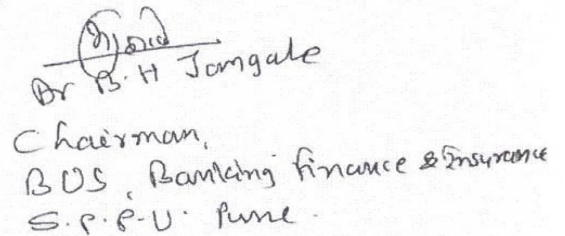 Dr B.H Jamgale
Chairman,
BOS, Banking finance & Insurance
S.P.P.U. Pune.